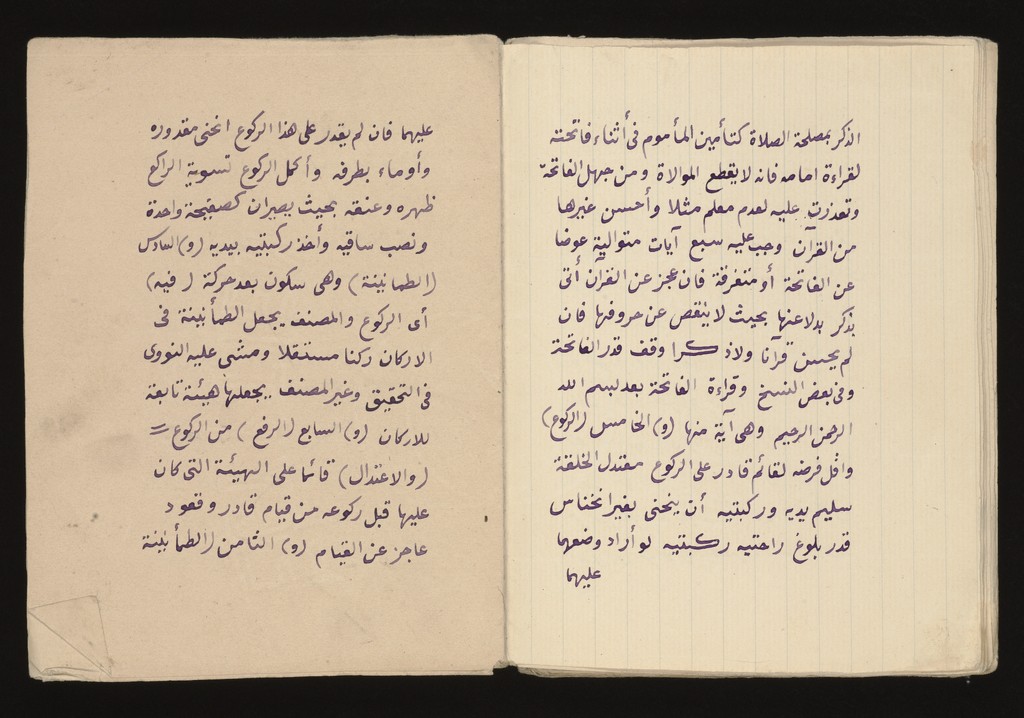 الذكر بمصلحة الصلاة كتأمين المأموم فى أثناء فاتحته
لقراءة امامه فانه لا يقطع الموالاة ومن جهل الفاتحة
وتعذرت عليه لعدم معلم مثلا وأحسن غيرها
من القرآن وجب عليه سبع آيات متوالية عوضا
عن الفاتحة أو متفرقة فان عجز عن القرآن أتى
بذكر بدلا عنها بحيث لا ينقص عن حروفها فان
لم يحسن قرآنا ولا ذكرا وقف قدر الفاتحة
وفى بعض النسخ وقراءة الفاتحة بعد بسم الله
الرحمن الرحيم وهى آية منها (و) الخامس (الركوع)
واقل فرضه لقائم قادر على الركوع معتدل الخلقة
سليم يديه وركبتيه أن ينحنى بغير انخناس
قدر بلوغ راحتيه ركبتيه لو أراد وضعهما
عليهما
عليهما فان لم يقدر على هذا الركوع انحنى مقدوره
وأوماء بطرفه وأكمل الركوع تسوية الراكع
ظهره وعنقه بحيث يصيران كصفيحة واحدة
ونصب ساقيه وأخذ ركبتيه بيديه (و) السادس
(الطمانينة) وهى سكون بعد حركة (فيه)
أى الركوع والمصنف يجعل الطمأنينة فى
الاركان ركنا مستقلا ومشى عليه النووى
فى التحقيق وغير المصنف يجعلها هيئة تابعة
للاركان (و) السابع (الرفع) من الركوع =
(والاعتدال) قائما على الهيئة التى كان
عليها قبل ركوعه من قيام قادر وقعود
عاجز عن القيام (و) الثامن (الطمأنينة